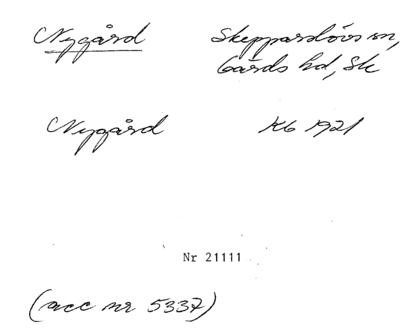 Nygård Skepparslövs sn,
Gärds hd, Sk
Nygård Kb 1921
Nr 21111
(acc nr 5337)